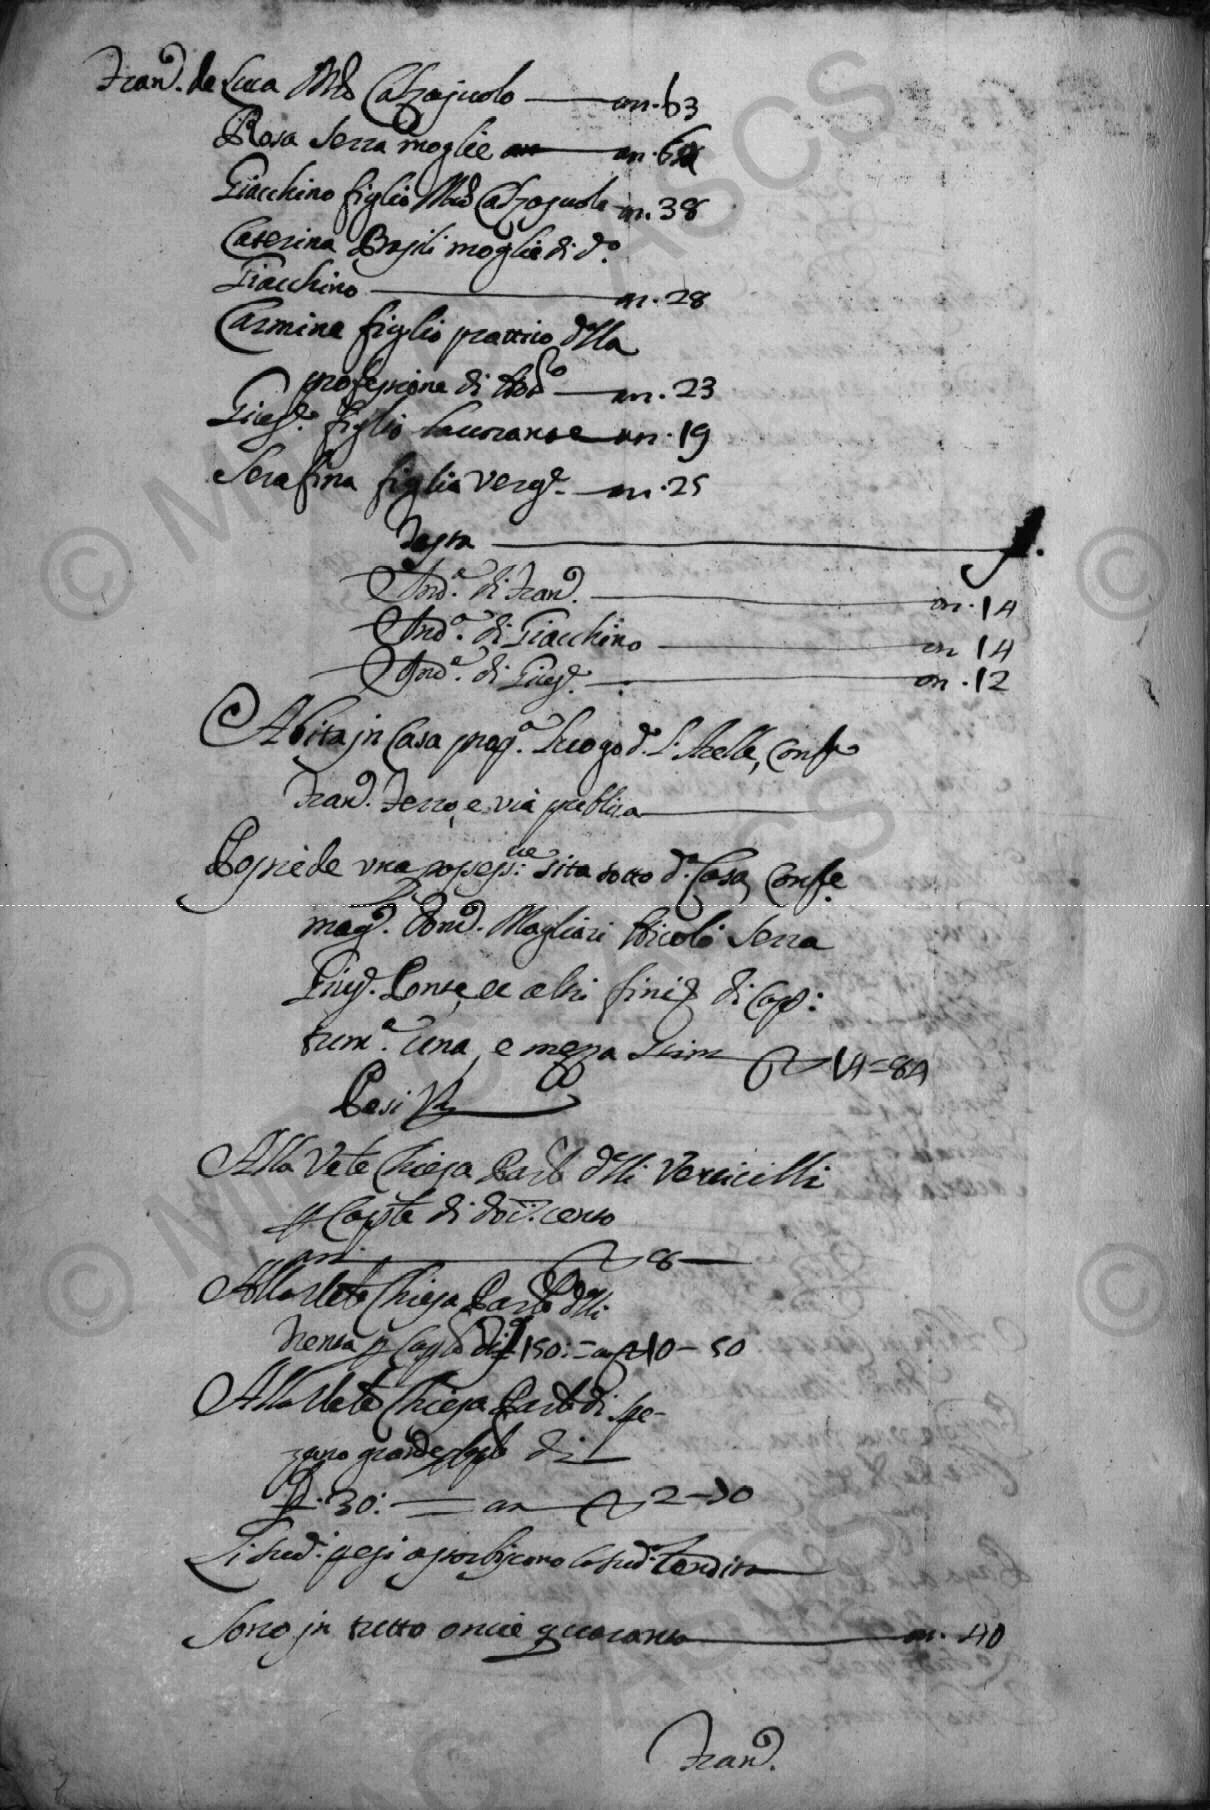 Fran.º de Luca M.º Calzajuolo — an. 63
Rosa Serra moglie — an. 6
Giacchino figlio M.º Calzajuolo an. 38
Caterina Basili moglie di d.º
Giacchino — an. 28
Carmine figlio prattico della
professione di — an. 23
Gius.e figlio an. 19
Serafina figlia verg.e — an. 25
Testa — 1.
Ind.a di Fran.º — on. 14
Ind.a di Giacchino — on 14
Ind.a di Gius.e — on. 12
Abita in Casa prop.a luogo d.º S. Stella, conf.e
Fran.º Ferro, e via publica
Possiede una possess.ne sita sotto d.a Casa, conf.e
mag.º Dom.º Magliari Nicolò Serra
Gius.e Conte, et altri fini di Cap:
tum.a una, e mezza 14=84
Pesi V
Alla V.te Chiesa Par.le delli Verticilli
p Cap.le di doc.: censo
an. — 8 —
Alla V.te Chiesa Par.le delli
Trenta p Cap.le di 150: = an 10-50
Alla V.te Chiesa Par.le di Pe-
zano grande p Cap.le di
D. 30: = an 2-10
Li sud.i pesi assorbiscono la sud.a rendita
Sono in tutto oncie quaranta — on. 40
Fran.º
© MIBAC ASCS
© MIBAC ASCS ©
© MIBAC ASCS ©